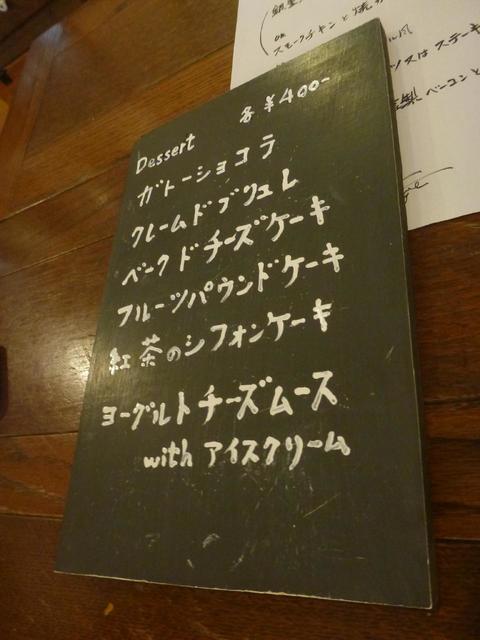 Dessert 各¥400-
ガトーショコラ
クレームドブリュレ
ベークドチーズケーキ
フルーツパウンドケーキ
紅茶のシフォンケーキ
ヨーグルトチーズムース
with アイスクリーム
スモークチキンと
ソースはステーキ
ベーコンと